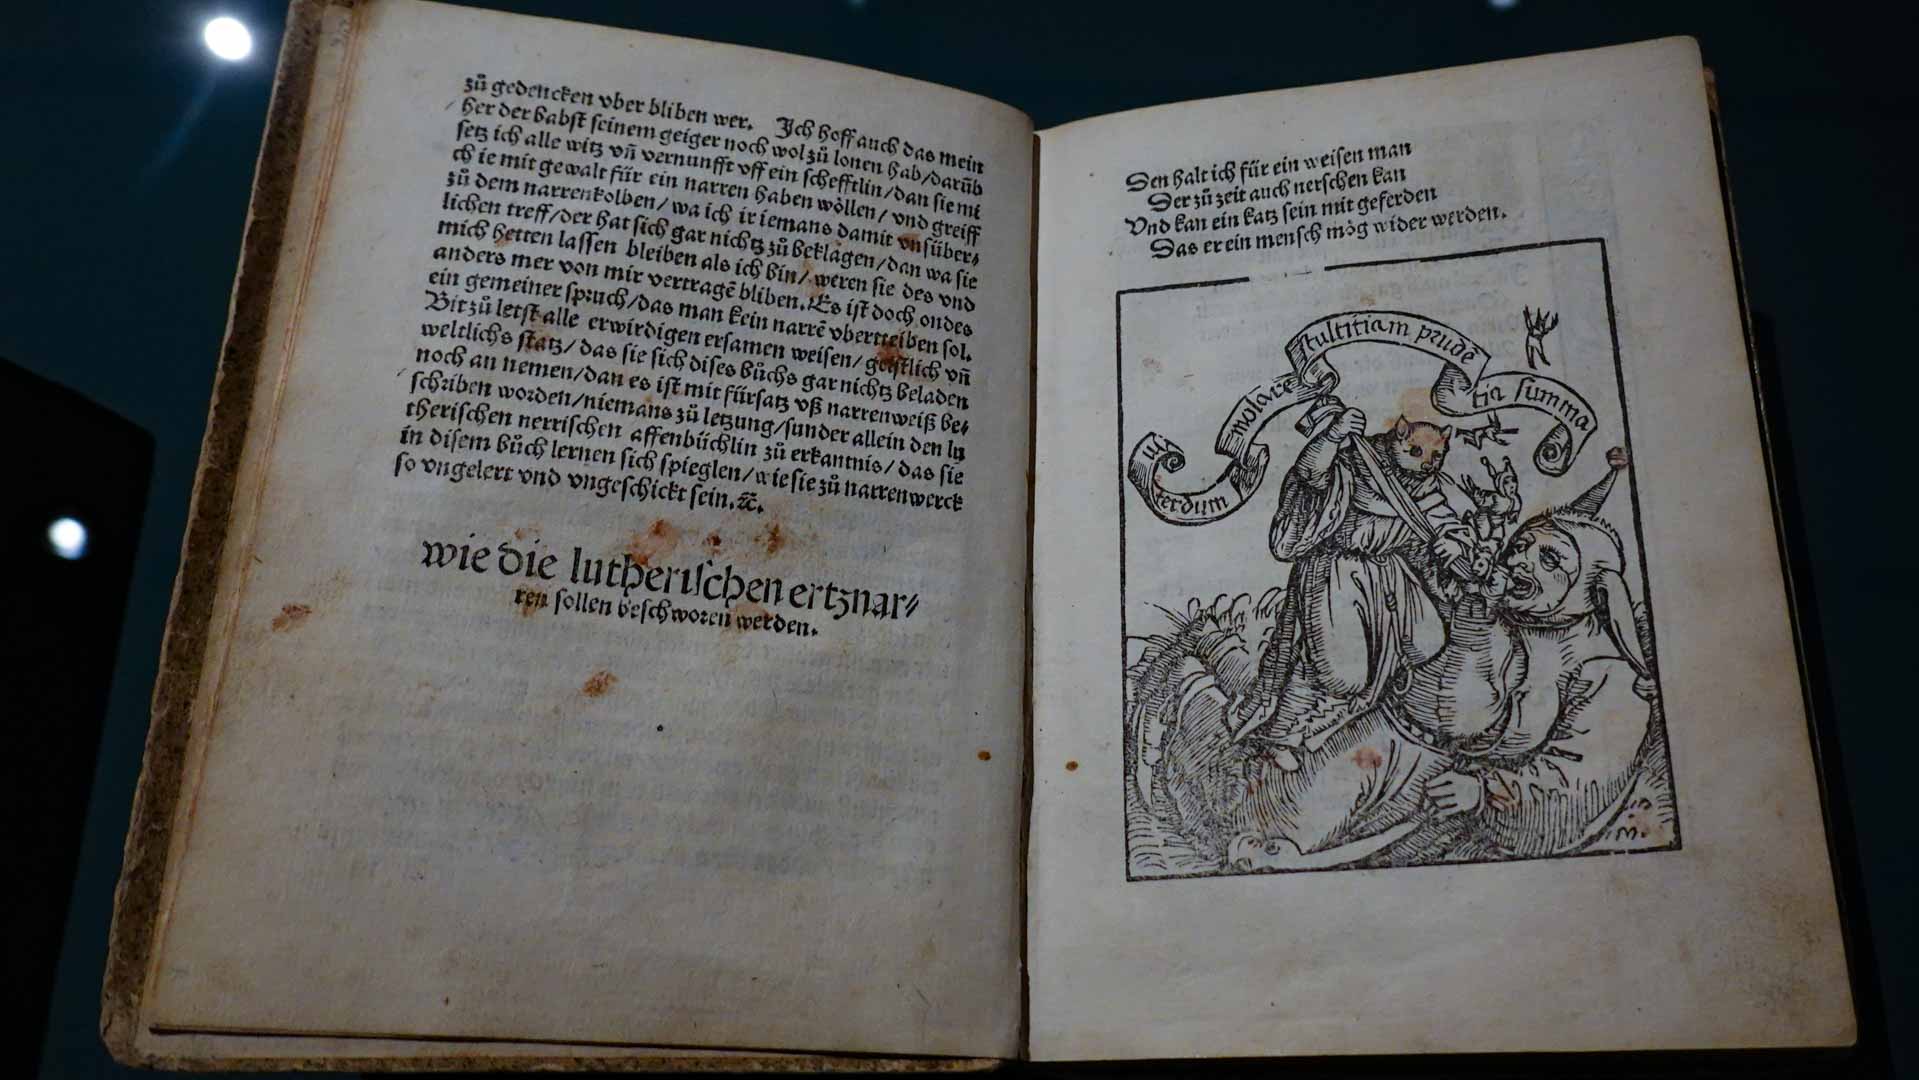 zů gedencken vber bliben wer. Ich hoff auch das mein
her der babst seinem geiger noch wol zů lonen hab/darũb
setz ich alle witz vñ vernunfft vff ein schefftlin/dan sie mi
ch ie mit gewalt für ein narren haben wöllen/ vnd greiff
zů dem narrenkolben/ wa ich ir iemans damit vnsüber⸗
lichen treff/der hat sich gar nichtz zů beklagen/dan wa sie
mich hetten lassen bleiben als ich bin/ weren sie des vnd
anders mer von mir vertragẽ bliben. Es ist doch ondes
ein gemeiner spruch/das man kein narrẽ vbertreiben sol.
Bit zů letst alle erwirdigen ersamen weisen/ geistlich vñ
weltlichs statz/ das sie sich dises bůchs gar nichtz beladen
noch an nemen/dan es ist mit fürsatz vß narrenweiß be⸗
schriben worden/niemans zů letzung/sunder allein den lu
therischen nerrischen affenbüchlin zů erkantnis/ das sie
in disem bůch lernen sich spieglen/wie sie zů narrenwerck
so vngelert vnd vngeschickt sein.ꝛc.
wie die lutherischen ertznar⸗
ren sollen beschworen werden.
Den halt ich für ein weisen man
Der zů zeit auch nerschen kan
Vnd kan ein katz sein mit geferden
Das er ein mensch mög wider werden.
stultitiam prudẽ
tia summa
simolare
terdum
M.